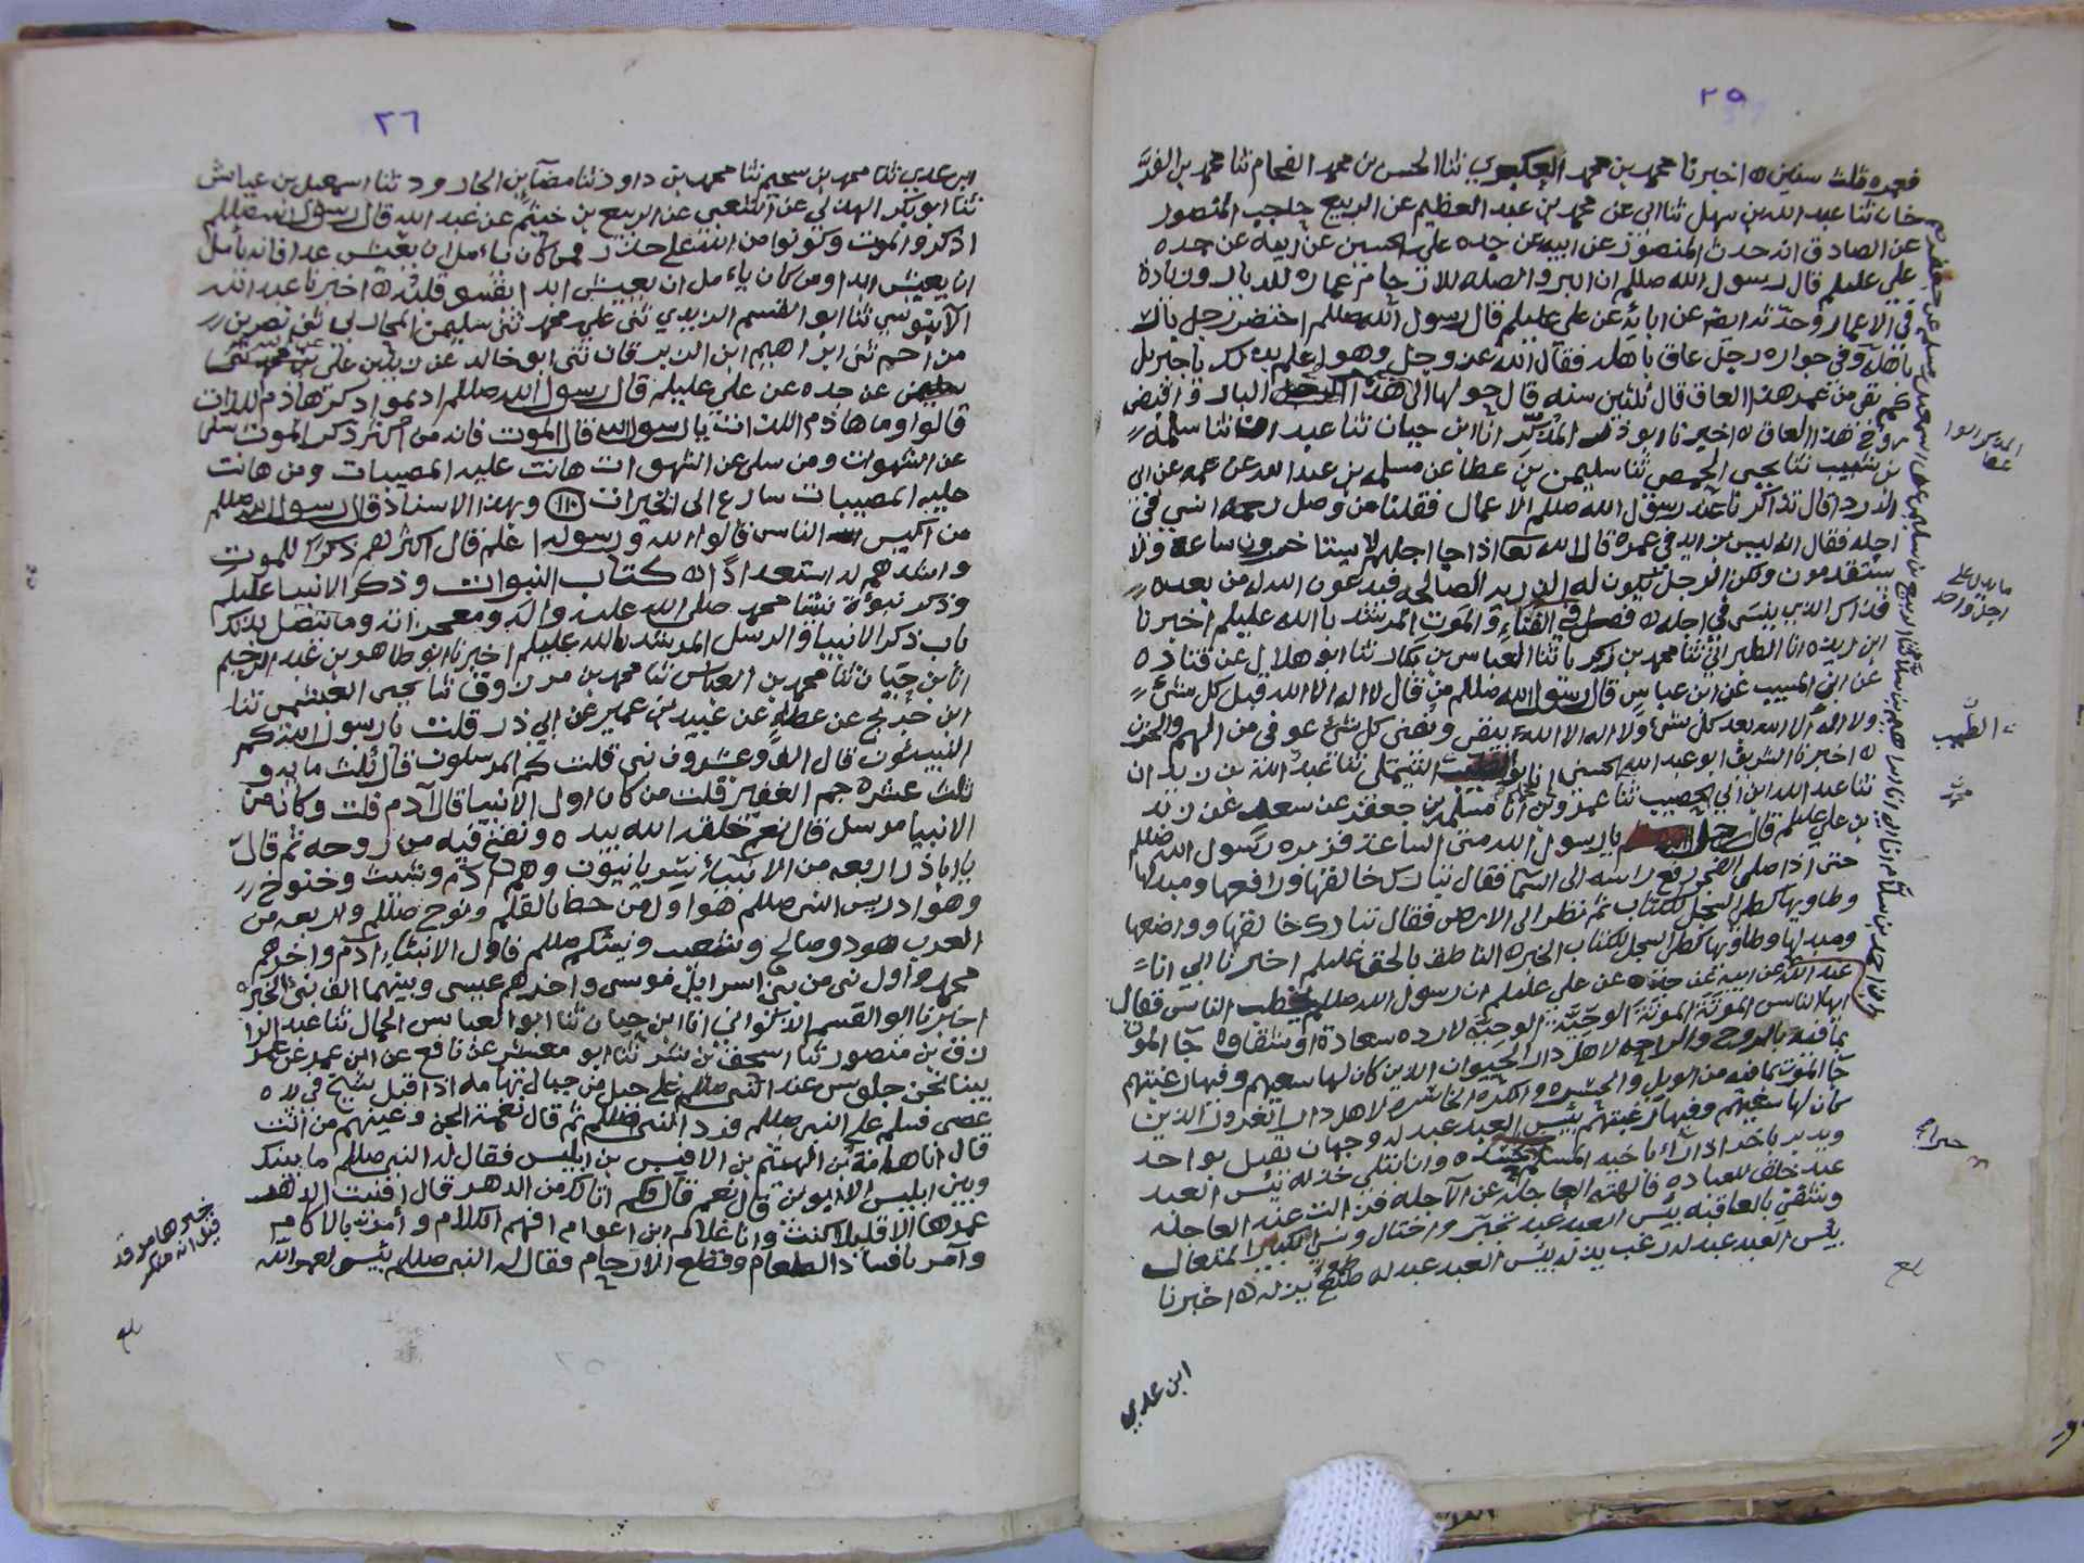 ٢٥
فعمره ثلث سنين ه اخبرنا محمد بن محمد العكبري ثنا الحسن بن محمد الفحام ثنا محمد بن
خان ثنا عبد الله بن سهل ثنا ابي عن محمد بن عبد العظيم عن الربيع حاجب المنصور
عن الصادق انه حدث المنصور عن ابيه عن جده علي بن الحسين عن ابيه عن جده
علي عليلم قال رسول الله صللم ان البر والصله للارحام عماره للديار وزيادة
في الاعمار وحدثه ايضا عن ابائه عن علي عليلم قال رسول الله صللم احتضر رجل بار
باهله وفي جواره رجل عاق باهله فقال الله عز وجل وهو اعلم بذلك يا جبريل
كم بقي من عمر هذا العاق قال ثلثين سنه قال حولها الى هذا البار واقبض
روح هذا العاق ه اخبرنا ابو ذر انا ابن حيان ثنا عبد ثنا سلمه
بن شبيب ثنا يحيى الحمصي ثنا سليمن بن عطا عن مسلمه بن عبد الله عن عمه عن ابي
الدردا قال تذاكرنا عند رسول الله صللم الاعمال فقلنا من وصل رحمه انسي في
اجله فقال انه ليس بزايد في عمره قال الله تعا اذا جا اجلهم لا يستاخرون ساعة ولا
يستقدمون ولكن الرجل يكون له الذريه الصالحه فيدعون الله له من بعده
فذاك الذي ينسى في اجله ه فصل في الفناء والموت المرشد بالله عليلم اخبرنا
ابن ريذه انا الطبراني ثنا محمد بن زكريا ثنا العباس بن بكار ثنا ابو هلال عن قتاده
عن ابن المسيب عن ابن عباس قال رسول الله صللم من قال لا اله الا الله قبل كل شيء
ولا اله الا الله بعد كل شيء ولا اله الا الله يبقى ويفنى كل شيء عوفي من الهم والحزن
ه اخبرنا الشريف ابو عبد الله الحسني انا ابو الشيملي ثنا عبد الله بن زيدان
ثنا عبد الله ابن ابي ثنا عمرو بن انا مسلم بن جعفر عن سعد عن زيد
بن علي عليلم قال يا رسول الله متى الساعة فزبره رسول الله صللم
حتى اذا صلى الفجر رفع راسه الى السما فقال تبارك خالقها ورافعها ومبدلها
وطاويها كطي السجل للكتاب ثم نظر الى الارض فقال تبارك خالقها وواضعها
ومبدلها وطاويها كطي السجل للكتاب الخبره الناطق بالحق عليلم اخبرنا ابي انا
عبد الله عن ابيه عن جده عن علي عليلم ان رسول الله صللم خطب الناس فقال
ايها الناس الموتة الموتة الوحيّة الوحيّة لا رده سعادة او شقاوه جآ الموت
بما فيه بالروح والراحه لاهل دار الحيوان الذين كان لها سعيهم وفيها رغبتهم
جآ الموت بما فيه من الويل والحسره والكره الخاسره لاهل دار الغرور الذين
كان لها سعيهم وفيها رغبتهم بئس العبد عبد له وجهان يقبل بواحد
ويدبر باخر اذا راء باخيه المسلم حسده وان ابتلي خذله بئس العبد
عبد خلق للعباده فالهته العاجلة عن الآجله فزالت عنه العاجله
وشقي بالعاقبه بئس العبد عبد تجبّر واختال ونسي الكبير المتعال
بئس العبد عبد له رغب يذله بئس العبد عبد له طمع يذله ه اخبرنا
ابن عدي
ما يدل على
اجل واحد
٢٦
ابن عدي ثنا محمد بن سحيم ثنا محمد بن داود ثنا مضآ بن الجارود ثنا اسمعيل بن عياش
ثنا ابو بكر الهذلي عن الشعبي عن الربيع بن خثيم عن عبد الله قال رسول الله صللم
اذكروا الموت وكونوا من الله على حذر فمن كان يأمل ان يعيش غدا فانه يأمل
ان يعيش ابدا ومن كان يأمل ان يعيش ابدا يقسو قلبه ه اخبرنا عبد الله
الآبنوسي ثنا ابو القسم الزيدي ثنى علي بن محمد ثنى سليمن المحاربي ثنى نصر بن
مزاحم ثنى ابراهيم ابن الزبرقان ثنى ابو خالد عن زيد بن علي
عن جده عن علي عليلم قال رسول الله صللم اديموا ذكر هاذم اللذات
قالوا وما هاذم اللذات يا رسول الله قال الموت فانه من اكثر ذكر الموت سلى
عن الشهوات ومن سلى عن الشهوات هانت عليه المصيبات ومن هانت
عليه المصيبات سارع الى الخيرات ١١٠ وبهذا الاسناد قال رسول الله صللم
من اكيس الناس قالوا الله ورسوله اعلم قال اكثرهم ذكرا للموت
واشدهم له استعدادًا ه كتاب النبوات وذكر الانبيا عليلم
وذكر نبوّة نبينا محمد صلى الله عليه واله ومعجزاته وما يتصل بذلك
باب ذكر الانبيا والرسل المرشد بالله عليلم اخبرنا ابو طاهر بن عبد الرحيم
انا بن حيّان ثنا محمد بن العباس ثنا محمد بن مرزوق ثنا يحيى العبشمي ثنا
ابن جريج عن عطا عن عبيد بن عمير عن ابي ذر قلت يا رسول الله كم
النبيئون قال الف وعشرون نبي قلت كم المرسلون قال ثلث مايه و
ثلث عشره جم الغفير قلت من كان اول الانبيا قال آدم قلت وكان من
الانبيا مرسل قال نعم خلقه الله بيده ونفخ فيه من روحه ثم قال
يا اباذر اربعه من الانبياء سريانيون وهم آدم وشيث وخنوخ
وهو ادريس النبي صللم هو اول من خط بالقلم ونوح صللم واربعه من
العرب هود وصالح وشعيب ونبيئكم صللم فاول الانبياء آدم واخرهم
محمد واول نبي من بني اسرايل موسى واخرهم عيسى وبينهما الف نبي الخبر ه
اخبرنا ابو القسم الذكواني انا ابن حيان ثنا ابو العباس الجمال ثنا عبد الرا
زق بن منصور ثنا اسحق بن بشر ثنا ابو معشر عن نافع عن ابن عمر عن عمر
بينا نحن جلوس عند النبي صللم على جبل من جبال تهامه اذ اقبل شيخ في يده
عصى فسلم على النبي صللم فرد النبي صللم ثم قال نغمة الجن وغنتهم من انت
قال انا هامة بن الهيثم بن الاقيس بن ابليس فقال له النبي صللم ما بينك
وبين ابليس الا ابوين قال نعم قال فكم اتا لك من الدهر قال افنيت الدهر
عمرها الا قليلا كنت وانا غلام ابن اعوام افهم الكلام وأمر بالاكام
وآمر بافساد الطعام وقطع الارحام فقال له النبي صللم بئس لعمر الله
خبر هامه وقد
قيل انه منكر